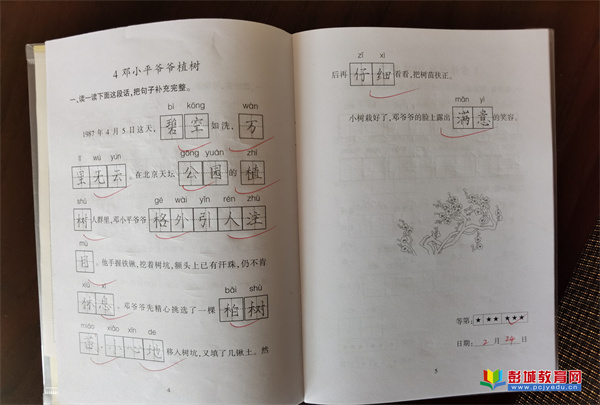 4 邓小平爷爷植树
一、读一读下面这段话,把句子补充完整。
bì kōng wàn
1987 年 4 月 5 日这天, 碧空 如洗, 万
lǐ wú yún gōng yuán zhí
里无云。在北京天坛 公园 的 植
shù gé wài yǐn rén zhù
树 人群里,邓小平爷爷 格外引人注
mù
目。他手握铁锹,挖着树坑,额头上已有汗珠,仍不肯
xiū xi bǎi shù
休息。邓爷爷先精心挑选了一棵 柏树
miáo xiǎo xīn de
苗,小心地 移入树坑,又填了几锹土。然
4
zǐ xì
后再 仔细 看看,把树苗扶正。
mǎn yì
小树栽好了,邓爷爷的脸上露出 满意 的笑容。
等第: ★★★ ★★★
日期: 2 月 24 日
5
彭城教育网
www.pcjyedu.cn